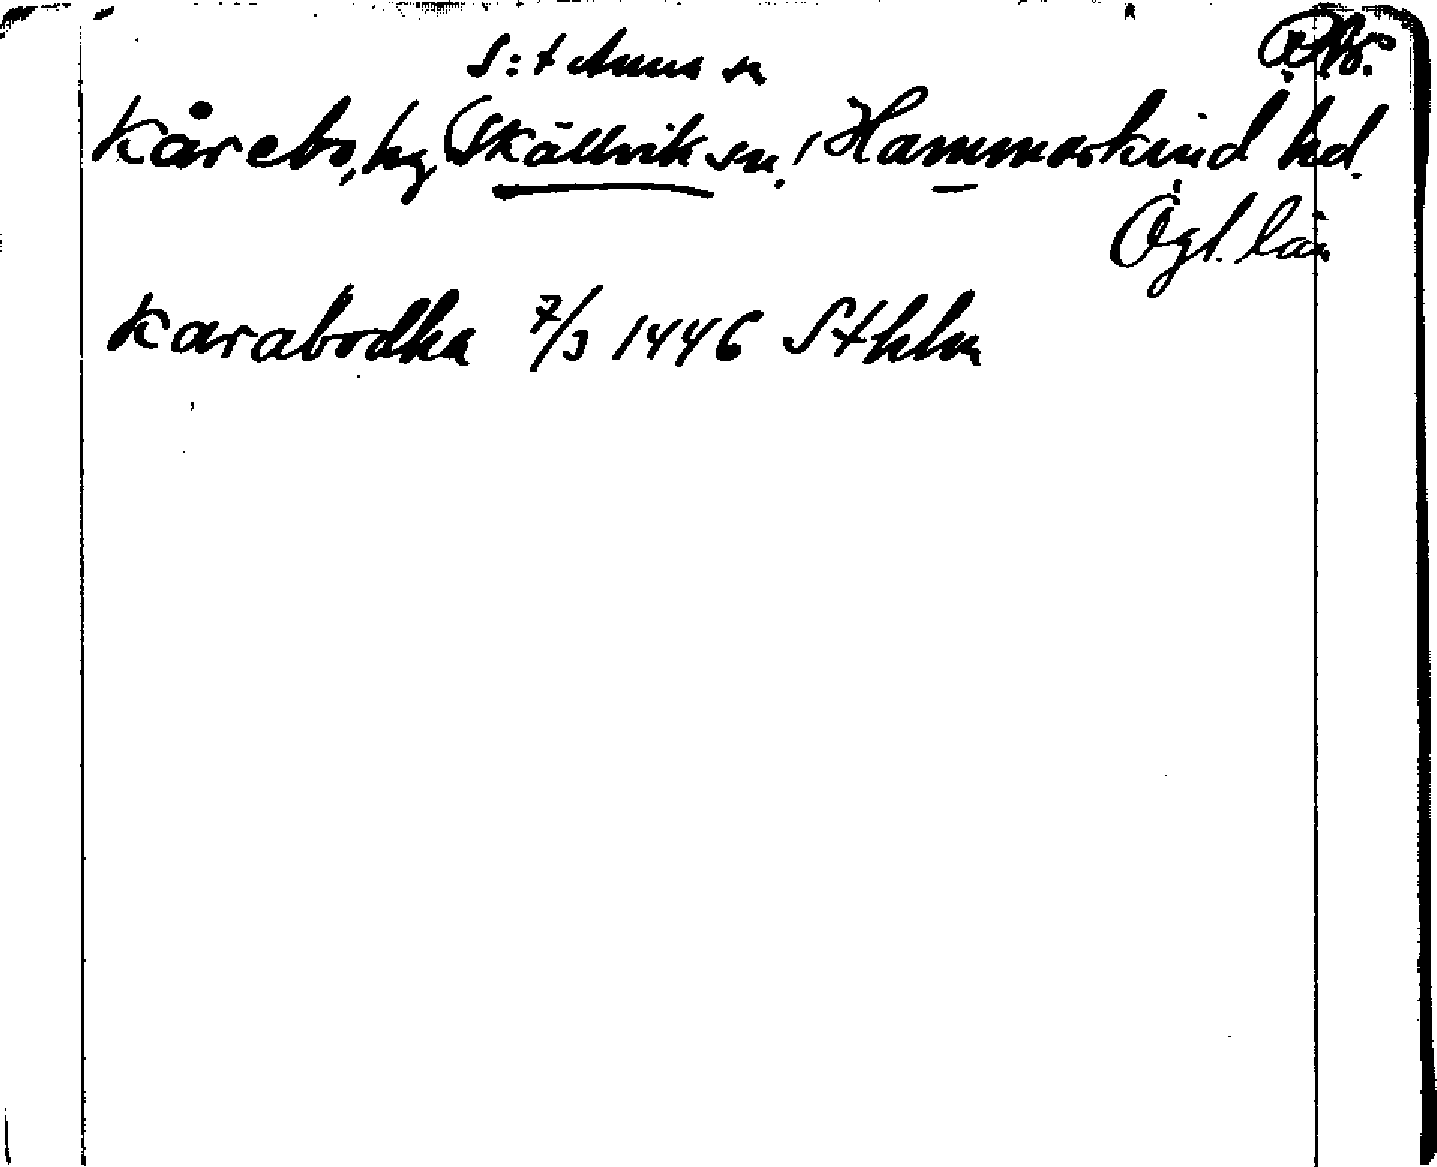 S:t Anna sn
Kårebo, hg, (Skällvik sn.) Hammarkind hd.
Ögl. län
Karabodha 7/3 1446 Sthlm